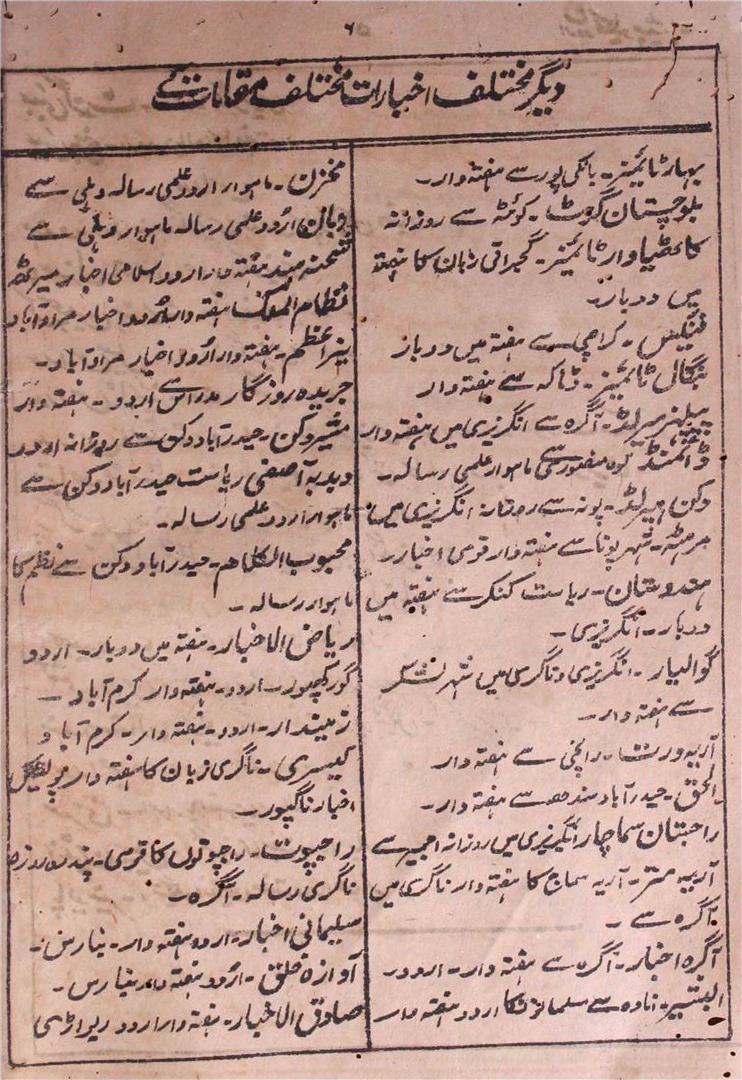 ۶۵
دیگر مختلف اخبارات مختلف مقامات کے
بہار ٹائیمز۔ بانکی پور سے ہفتہ وار۔
بلوچستان گزٹ۔ کوئٹہ سے روزانہ
کاٹھیاوار ٹائیمز۔ گجراتی زبان کا ہفتہ
میں دو بار۔
فینکس۔ کراچی سے ہفتہ میں دو بار
بنگال ٹائیمز۔ ڈاکہ سے ہفتہ وار
پیپلز ہیرلڈ۔ آگرہ سے انگریزی میں ہفتہ وار
ڈائمنڈ کوہ منصوری سے ماہوار علمی رسالہ۔
دکن ہیرلڈ۔ پونہ سے روزانہ انگریزی میں
مرہٹہ۔ شہر پونا سے ہفتہ وار قومی اخبار۔
ہندوستان۔ ریاست کنکر سے ہفتہ میں
دوبار۔ انگریزی۔
گوالیار۔ انگریزی و ناگری میں شہر لشکر
سے ہفتہ وار۔
آریہ ورت۔ رانچی سے ہفتہ وار
الحق۔ حیدرآباد سندھ سے ہفتہ وار۔
راجستان سماچار انگریزی میں روزانہ اجمیر سے
آریہ متر۔ آریہ سماج کا ہفتہ وار ناگری میں
آگرہ سے۔
آگرہ اخبار۔ آگرہ سے ہفتہ وار۔ اردو۔
البشیر۔ اٹاوہ سے مسلمانوں کا اردو ہفتہ وار
مخزن۔ ماہوار اردو علمی رسالہ دہلی سے
زبان اردو علمی رسالہ ماہوار دہلی سے
شحنہ ہند ہفتہ وار اردو اسلامی اخبار میرٹھ
نظام الملک ہفتہ وار اردو اخبار مرادآباد
نیر اعظم۔ ہفتہ وار اردو اخبار مرادآباد۔
جریدہ روزگار مدراس اردو۔ ہفتہ وار
مشیر دکن۔ حیدرآباد دکن سے روزانہ اردو
دبدبہ آصفی ریاست حیدرآباد دکن سے
ماہوار اردو علمی رسالہ۔
محبوب الکلام۔ حیدرآباد دکن سے نظم کا
ماہوار رسالہ۔
ریاض الاخبار۔ ہفتہ میں دوبار۔ اردو
گورکھپور۔ اردو۔ ہفتہ وار کرم آباد۔
زمیندار۔ اردو۔ ہفتہ وار۔ کرم آباد
کیسری۔ ناگری زبان کا ہفتہ وار
اخبار ناگپور۔
راجپوت۔ راجپوتوں کا قومی۔ پندرہ روزہ
ناگری رسالہ۔ آگرہ۔
سلیمانی اخبار۔ اردو ہفتہ وار۔ بنارس۔
آوازہ خلق۔ اردو ہفتہ وار بنارس۔
صادق الاخبار۔ ہفتہ وار اردو ریواڑی